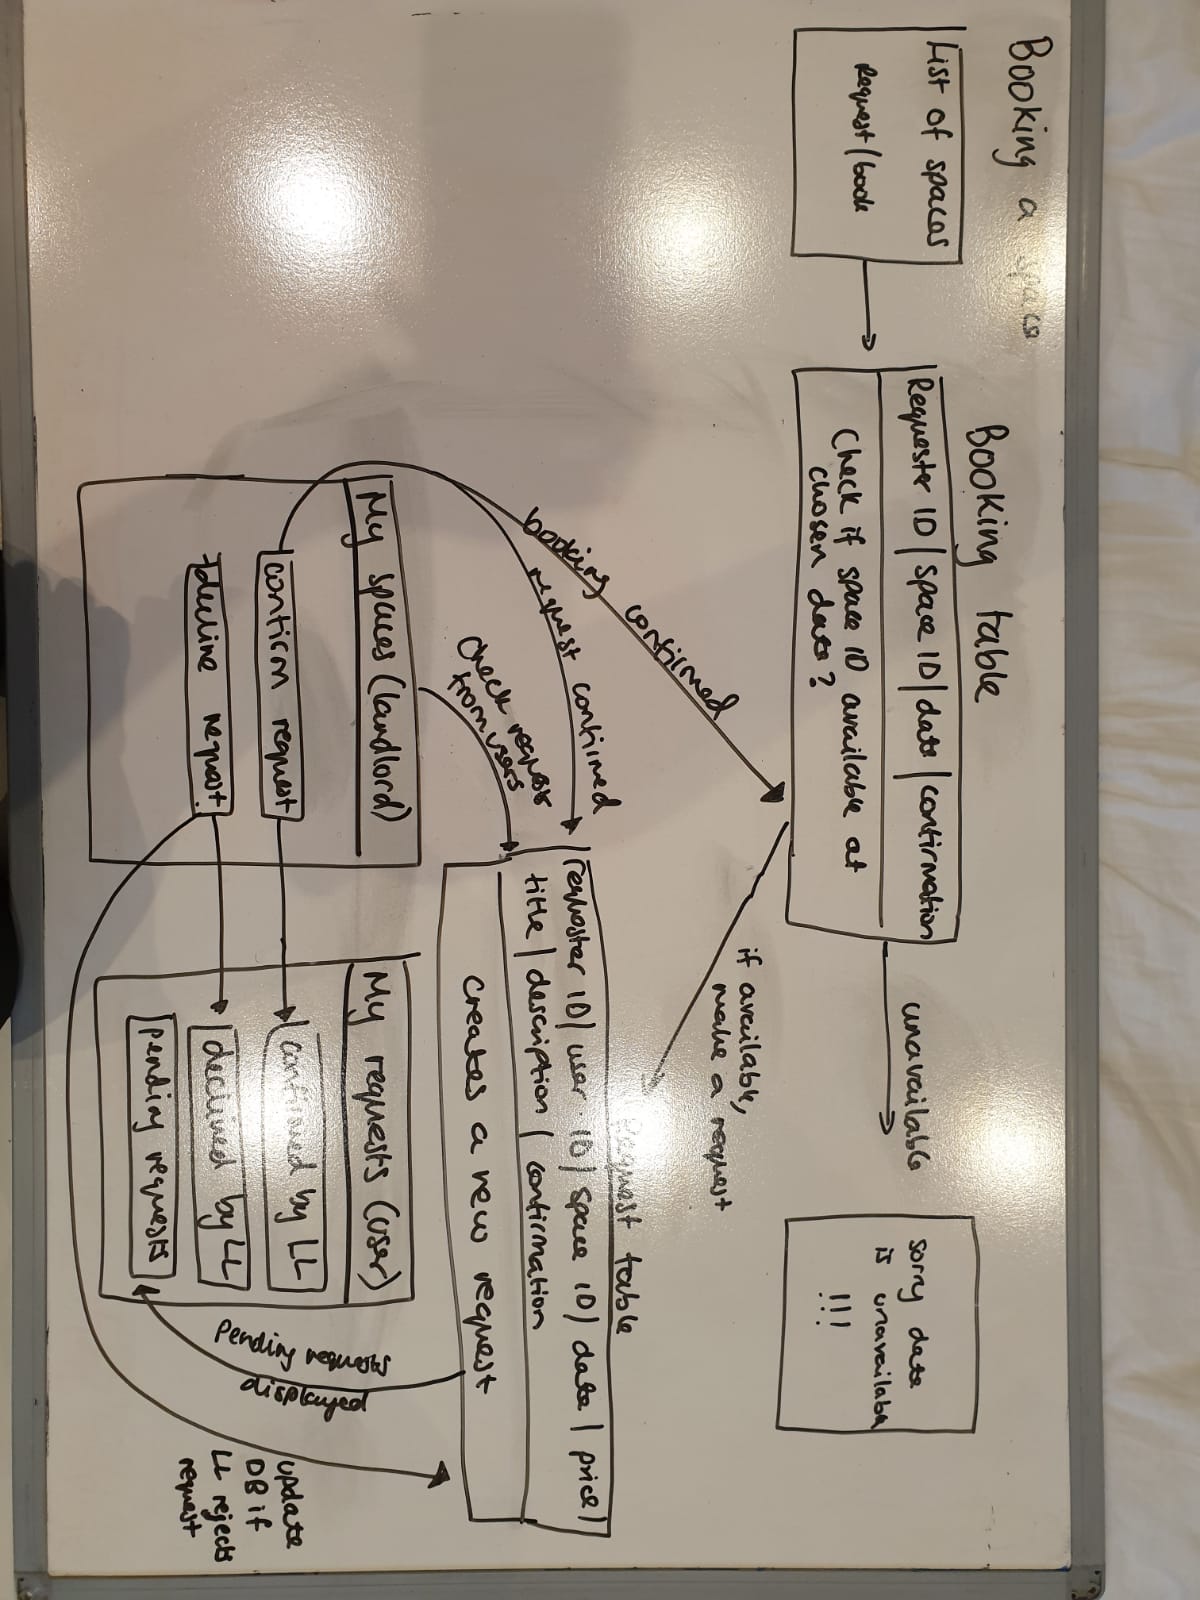 Booking a space
List of spaces
Request/book
Booking table
Requester ID | space ID | date | confirmation
Check if space ID available at
chosen date?
unavailable
sorry date
is unavailable
!!!
if available,
make a request
booking confirmed
request confirmed
check requests
from users
Request table
requester ID | user ID | space ID | date | price |
title | description | confirmation
creates a new request
My spaces (landlord)
confirm request
decline request
My requests (user)
confirmed by LL
declined by LL
pending requests
Pending requests
displayed
update
DB if
LL rejects
request